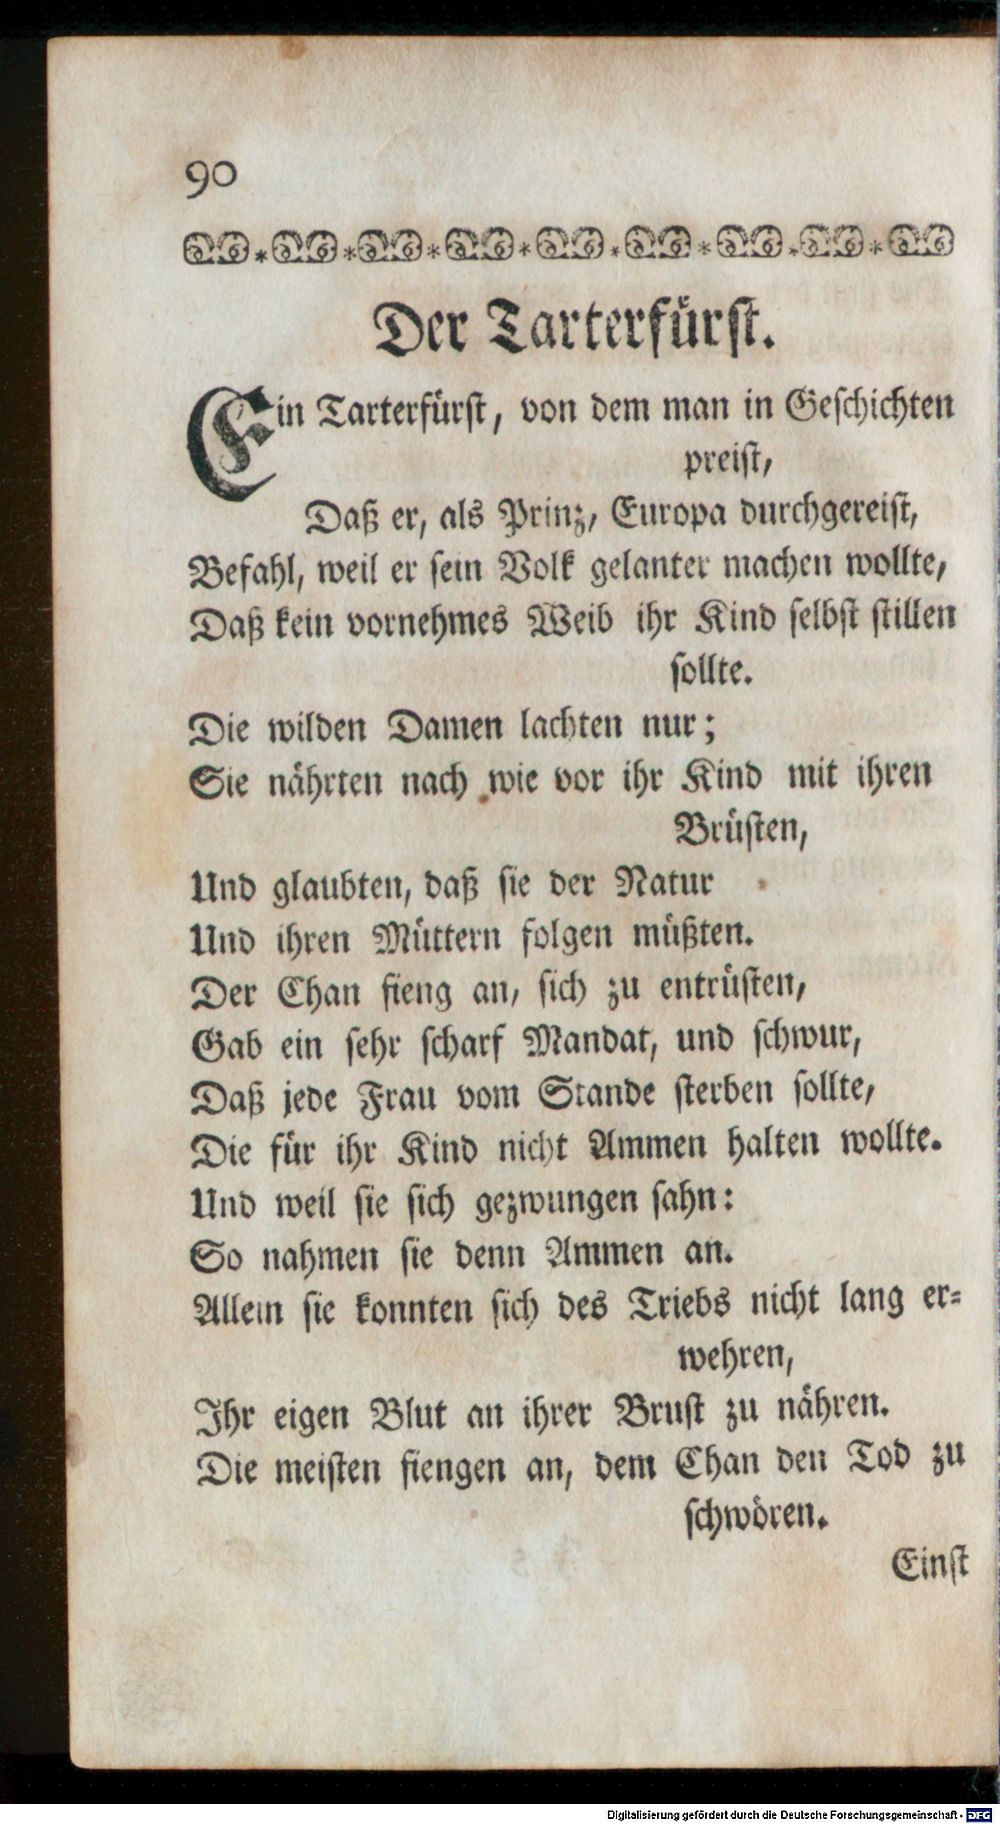 90
Der Tarterfürst.
Ein Tarterfürst, von dem man in Geschichten
preist,
Daß er, als Prinz, Europa durchgereist,
Befahl, weil er sein Volk gelanter machen wollte,
Daß kein vornehmes Weib ihr Kind selbst stillen
sollte.
Die wilden Damen lachten nur;
Sie nährten nach wie vor ihr Kind mit ihren
Brüsten,
Und glaubten, daß sie der Natur
Und ihren Müttern folgen müßten.
Der Chan fieng an, sich zu entrüsten,
Gab ein sehr scharf Mandat, und schwur,
Daß jede Frau vom Stande sterben sollte,
Die für ihr Kind nicht Ammen halten wollte.
Und weil sie sich gezwungen sahn:
So nahmen sie denn Ammen an.
Allein sie konnten sich des Triebs nicht lang er-
wehren,
Ihr eigen Blut an ihrer Brust zu nähren.
Die meisten fiengen an, dem Chan den Tod zu
schwören.
Einst
Digitalisierung gefördert durch die Deutsche Forschungsgemeinschaft - DFG